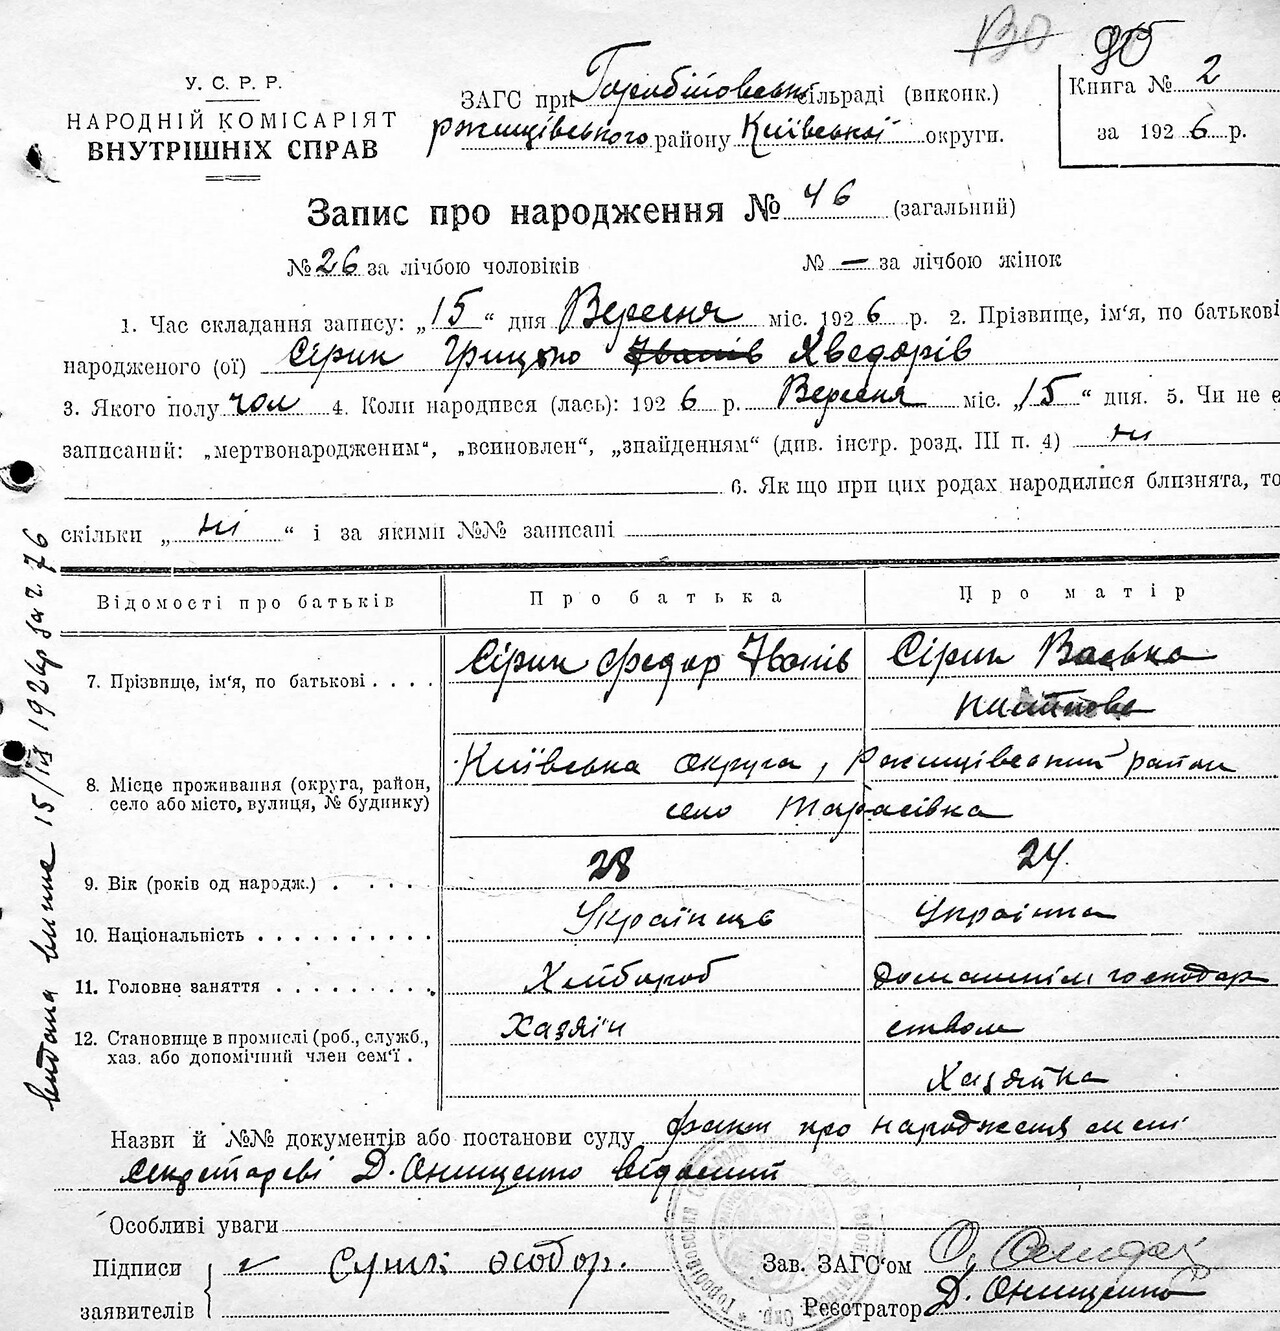 ВО 95
У. С. Р. Р.
НАРОДНІЙ КОМІСАРІЯТ
ВНУТРІШНІХ СПРАВ
ЗАГС при сільраді (виконк.)
ржищівського району Київської округи.
Книга № 2
за 1926 р.
Запис про народження № 46 (загальний)
№ 26 за лічбою чоловіків № — за лічбою жінок
1. Час складання запису: „15“ дня Вересня міс. 1926 р. 2. Прізвище, ім'я, по батькові
народженого (ої) Сірик Грицько Іванів Хведорів
3. Якого полу чол 4. Коли народився (лась): 1926 р. Вересня міс. „15“ дня. 5. Чи не є
записаний: „мертвонародженим“, „всиновлен“, „знайденням“ (див. інстр. розд. III п. 4) ні
6. Якщо при цих родах народилися близнята, то
скільки „ні“ і за якими №№ записані
Відомості про батьків Про батька Про матір
7. Прізвище, ім'я, по батькові . . . . Сірик Федор Іванів Сірик Васька
8. Місце проживання (округа, район,
село або місто, вулиця, № будинку)
Київська округа, Ржищівський район
село Тарасівка
9. Вік (років од народж.) . . . . 28 24
10. Національність . . . . . . . . . . Українець Українка
11. Головне заняття . . . . . . . . . Хлібороб Домашнім господар
ством
12. Становище в промислі (роб., служб.,
хаз. або допомічний член сем'ї . Хазяїн
Хазяйка
Назви й №№ документів або постанови суду факт про народження мені
секретареві Д. Онищенко відомий
Особливі уваги
Підписи
заявителів
Сірик особ
Зав. ЗАГС'ом О.
Реєстратор Д. Онищенко
видана 15/IX 1926р за ч. 76